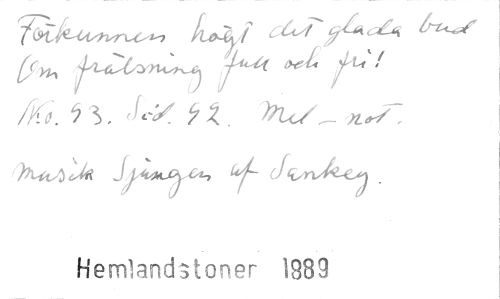 Förkunnen högt det glada bud
Om frälsning full och fri!
No. 93. Sid. 92. Mel – not.
Musik Sjungen af Sankey.
Hemlandstoner 1889